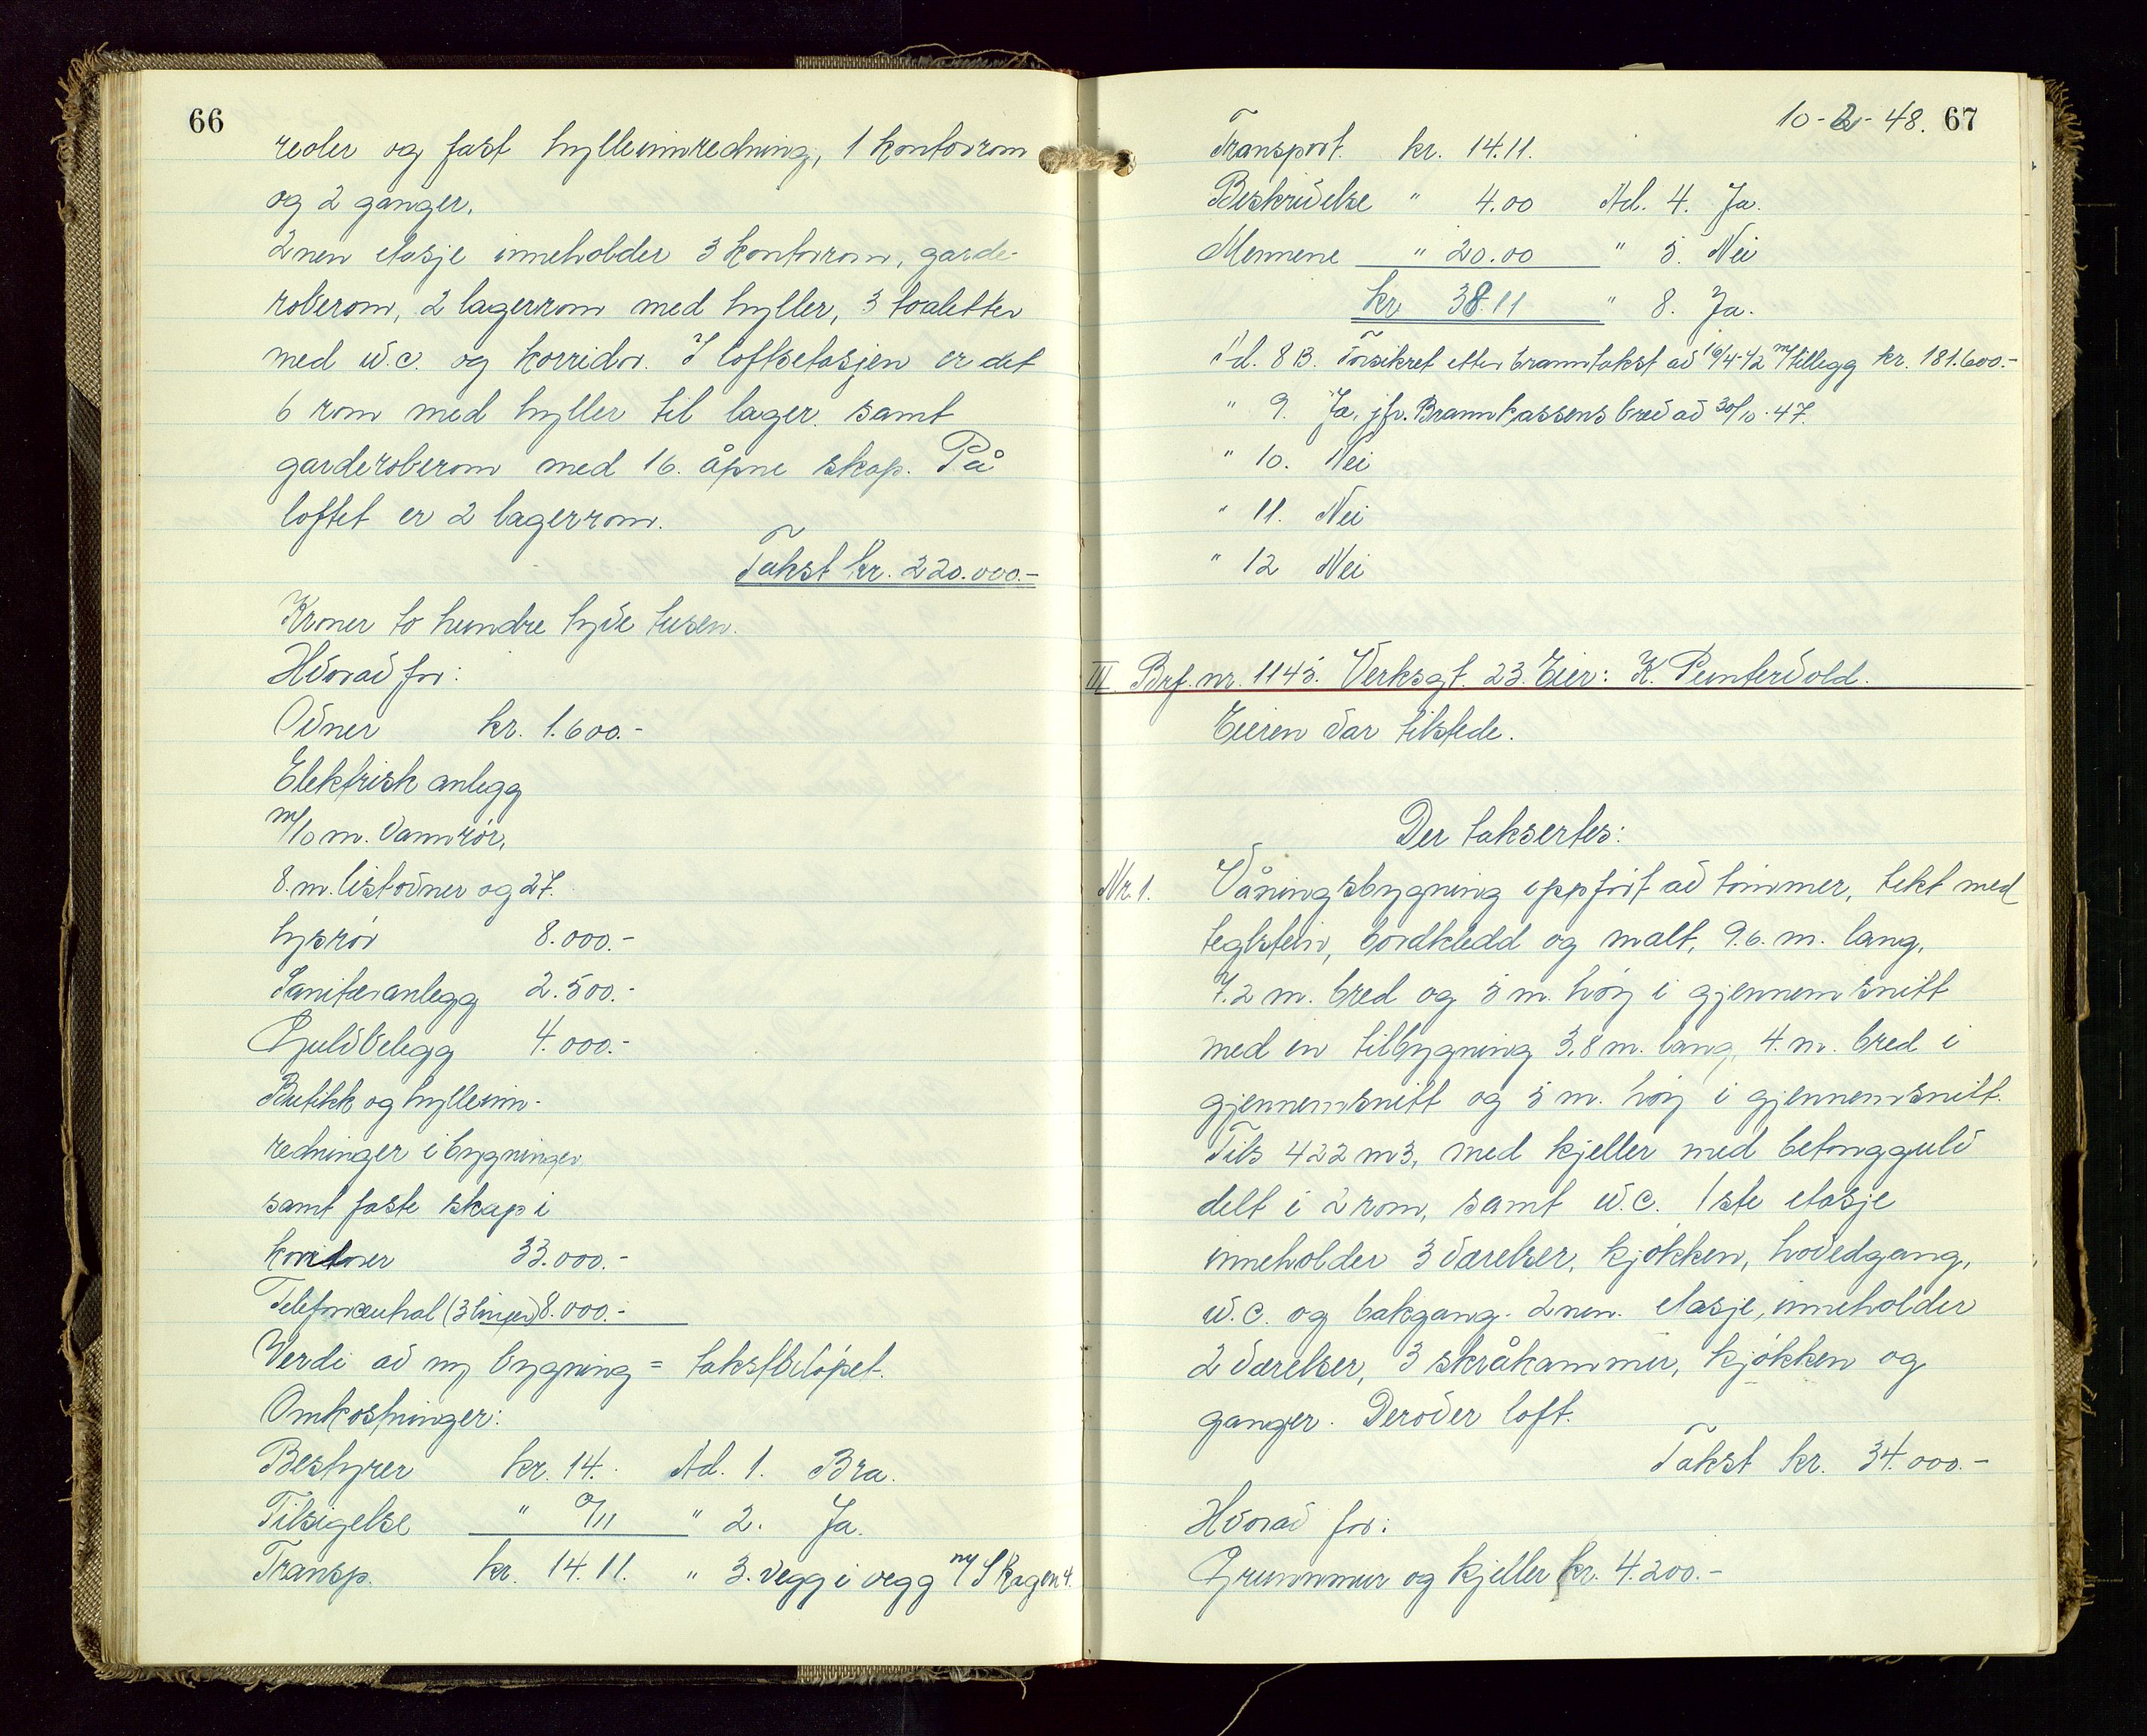 66
reoler og fast hylleinnredning, 1 kontorrom
og 2 ganger.
2nen etasje inneholder 3 kontorrom, garde-
roberom, 2 lagerrom med hyller, 3 toaletter
med w.c. og korridor. I loftsetasjen er det
6 rom med hyller til lager samt
garderoberom med 16. åpne skap. På
loftet er 2 lagerrom.
Takst kr. 220.000.-
Kroner to hundre tyve tusen.
Hvorav for:
Ovner kr. 1.600.-
Elektrisk anlegg
m/10 m. vannrör,
8.m. listovner og 27.
lysrör 8.000.-
Sanitæranlegg 2.500.-
Gulvbelegg 4.000.-
Butikk og hylleinn-
redninger i bygningen
samt faste skap i
33.000.-
Telefoncentral (3 linjer) 8.000.-
Verdi av ny bygning = takstbelöpet.
Omkostninger:
Bestyrer kr. 14.- Ad. 1. Bra.
Tilsigelse " 0/11 " 2. Ja.
Transp. kr. 14.11. " 3. vegg i vegg m/ Skagen 4.
10-2-48. 67
Transport. kr. 14.11.
Beskrivelse " 4.00 Ad. 4. Ja.
Mennene " 20.00 " 5. Nei
kr 38.11 " 8. Ja.
Ad. 8 B. Forsikret etter branntakst av 16/4-42 m/tillegg kr. 181.600.-
" 9. Ja, jfr. Brannkassens brev av 30/10-47.
" 10. Nei
" 11. Nei
" 12 Nei
III Brf. nr. 1145. Verksgt. 23. Eier: K. Puntervold.
Eieren var tilstede.
Der taksertes:
Nr. 1. Våningsbygning oppfört av tömmer, tekt med
teglstein, bordkledd og malt, 9.6. m. lang,
7.2 m. bred og 5 m. höy i gjennemsnitt
med en tilbygning 3.8 m. lang, 4. m. bred i
gjennemsnitt og 5 m. höy i gjennemsnitt.
Tils 422 m3, med kjeller med betonggulv
delt i 2 rom, samt w.c. 1ste etasje
inneholder 3 værelser, kjökken, hovedgang,
w.c. og bakgang. 2nen. etasje, inneholder
2 værelser, 3 skråkammer, kjökken og
ganger. Derover loft.
Takst kr. 34.000.-
Hvorav for:
Grunnmur og kjeller kr. 4.200.-